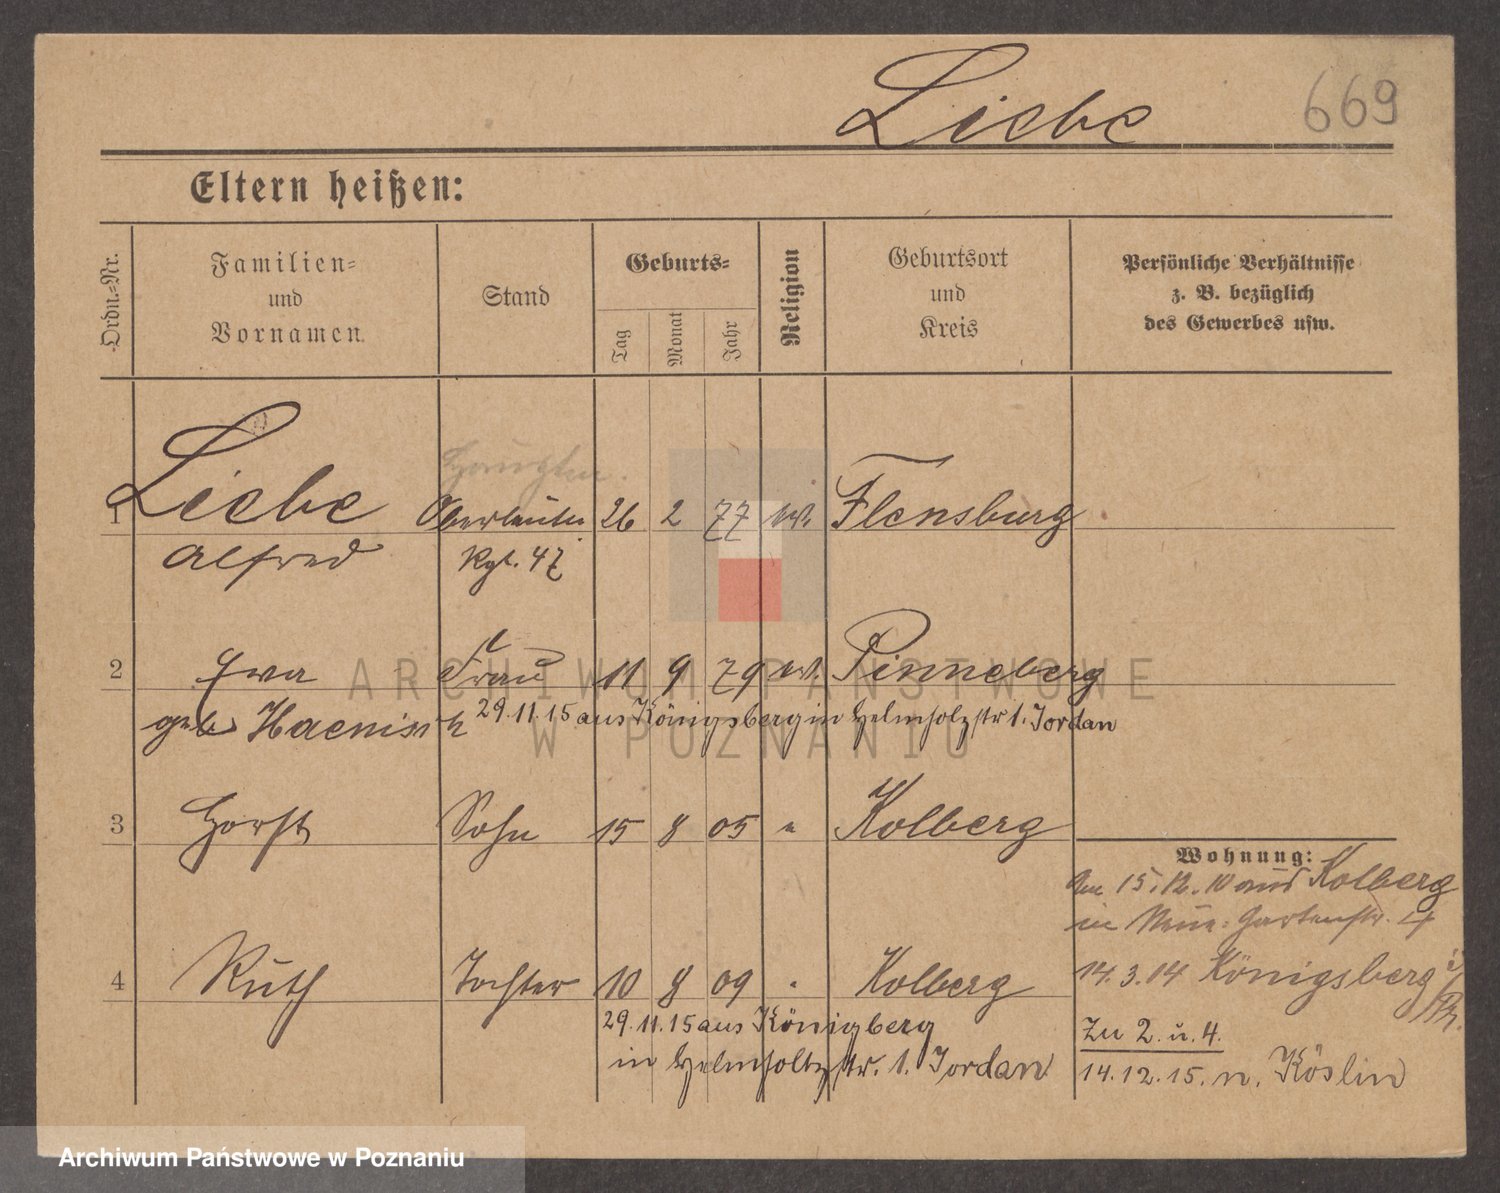 Liebe 669
Eltern heißen:
Ordn.-Nr.
Familien-
und
Vornamen.
Stand
Geburts-
Tag
Monat
Jahr
Religion
Geburtsort
und
Kreis
Persönliche Verhältnisse
z. B. bezüglich
des Gewerbes usw.
Hauptm.
1 Liebe Oberleutn. 26 2 77 ev. Flensburg
Alfred Rgt. 47
2 Eva Frau 11 9 79 ev. Pinneberg
geb Haenisch 29.11.15 aus Königsberg in Helmholzstr 1. Jordan
3 Horst Sohn 15 8 05 " Kolberg
Wohnung:
15.12.10 aus Kolberg
in Neue Gartenstr. 4
14.3.14 Königsberg i/Pr.
4 Ruth Tochter 10 8 09 " Kolberg
29.11.15 aus Königberg
in Helmholtzstr. 1. Jordan
Zu 2. u. 4.
14.12.15. n. Köslin
ARCHIWUM PAŃSTWOWE
W POZNANIU
Archiwum Państwowe w Poznaniu